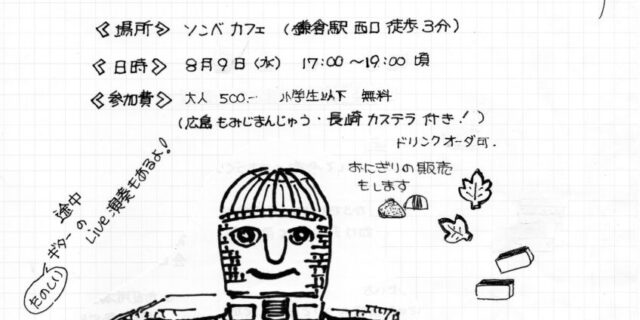 《場所》 ソンベカフェ (鎌倉駅 西口 徒歩3分)
《日時》 8月9日(水) 17:00〜19:00 頃
《参加費》 大人 500.- 小学生以下 無料
(広島もみじまんじゅう・長崎カステラ付き!)
ドリンクオーダ可.
おにぎりの販売
もします
途中
ギターの
Live演奏もあるよ!
たのしい